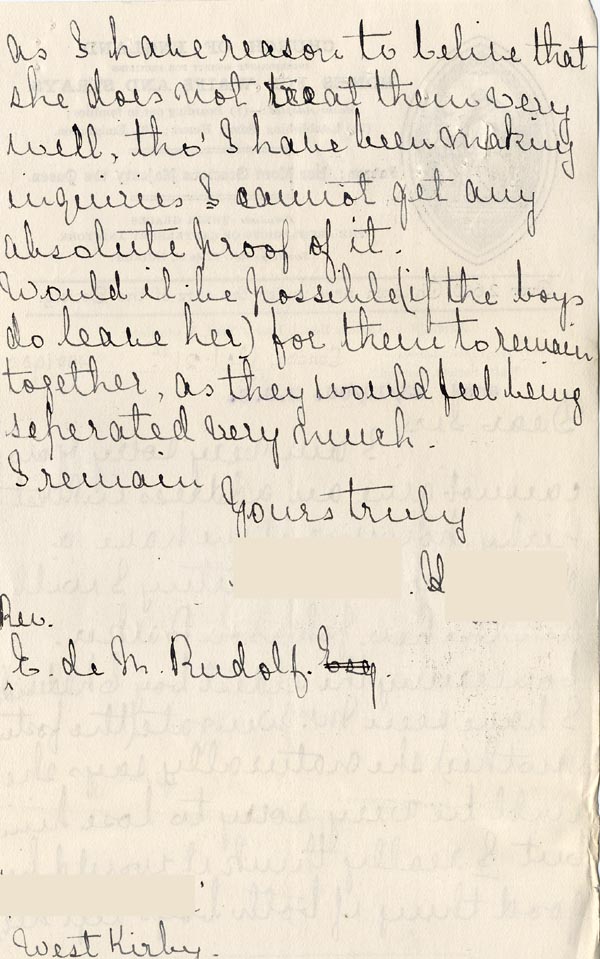 as I have reason to belive that
she does not treat them very
well, tho' I have been making
inquiries I cannot get any
absolute proof of it.
Would it be possible (if the boys
do leave her) for them to remain
together, as they would feel being
seperated very much.
I remain
Yours truly
H
Rev.
E. de M. Rudolf. Esq.
West Kirby.